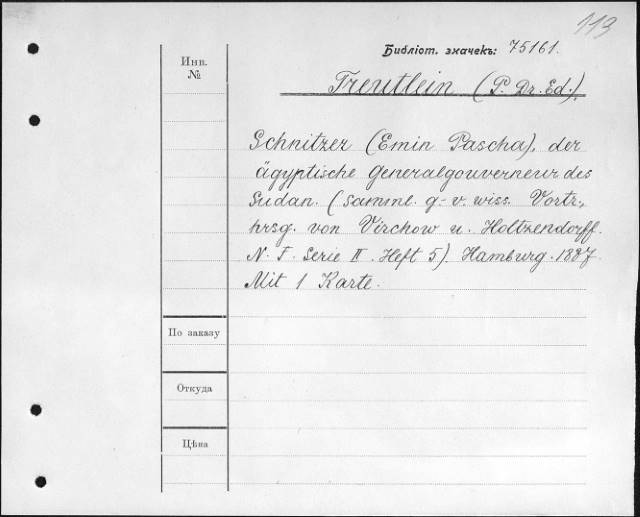 113
Библіот. значекъ: 75161.
Инв.
№
Treutlein (P. Dr. Ed.).
Schnitzer (Emin Pascha), der
ägyptische Generalgouverneur des
Sudan. (Samml. g.-v. wiss. Vortr.,
hrsg. von Virchow u. Holtzendorff.
N. F. Serie II. Heft 5). Hamburg. 1887.
Mit 1 Karte.
По заказу
Откуда
Цѣна